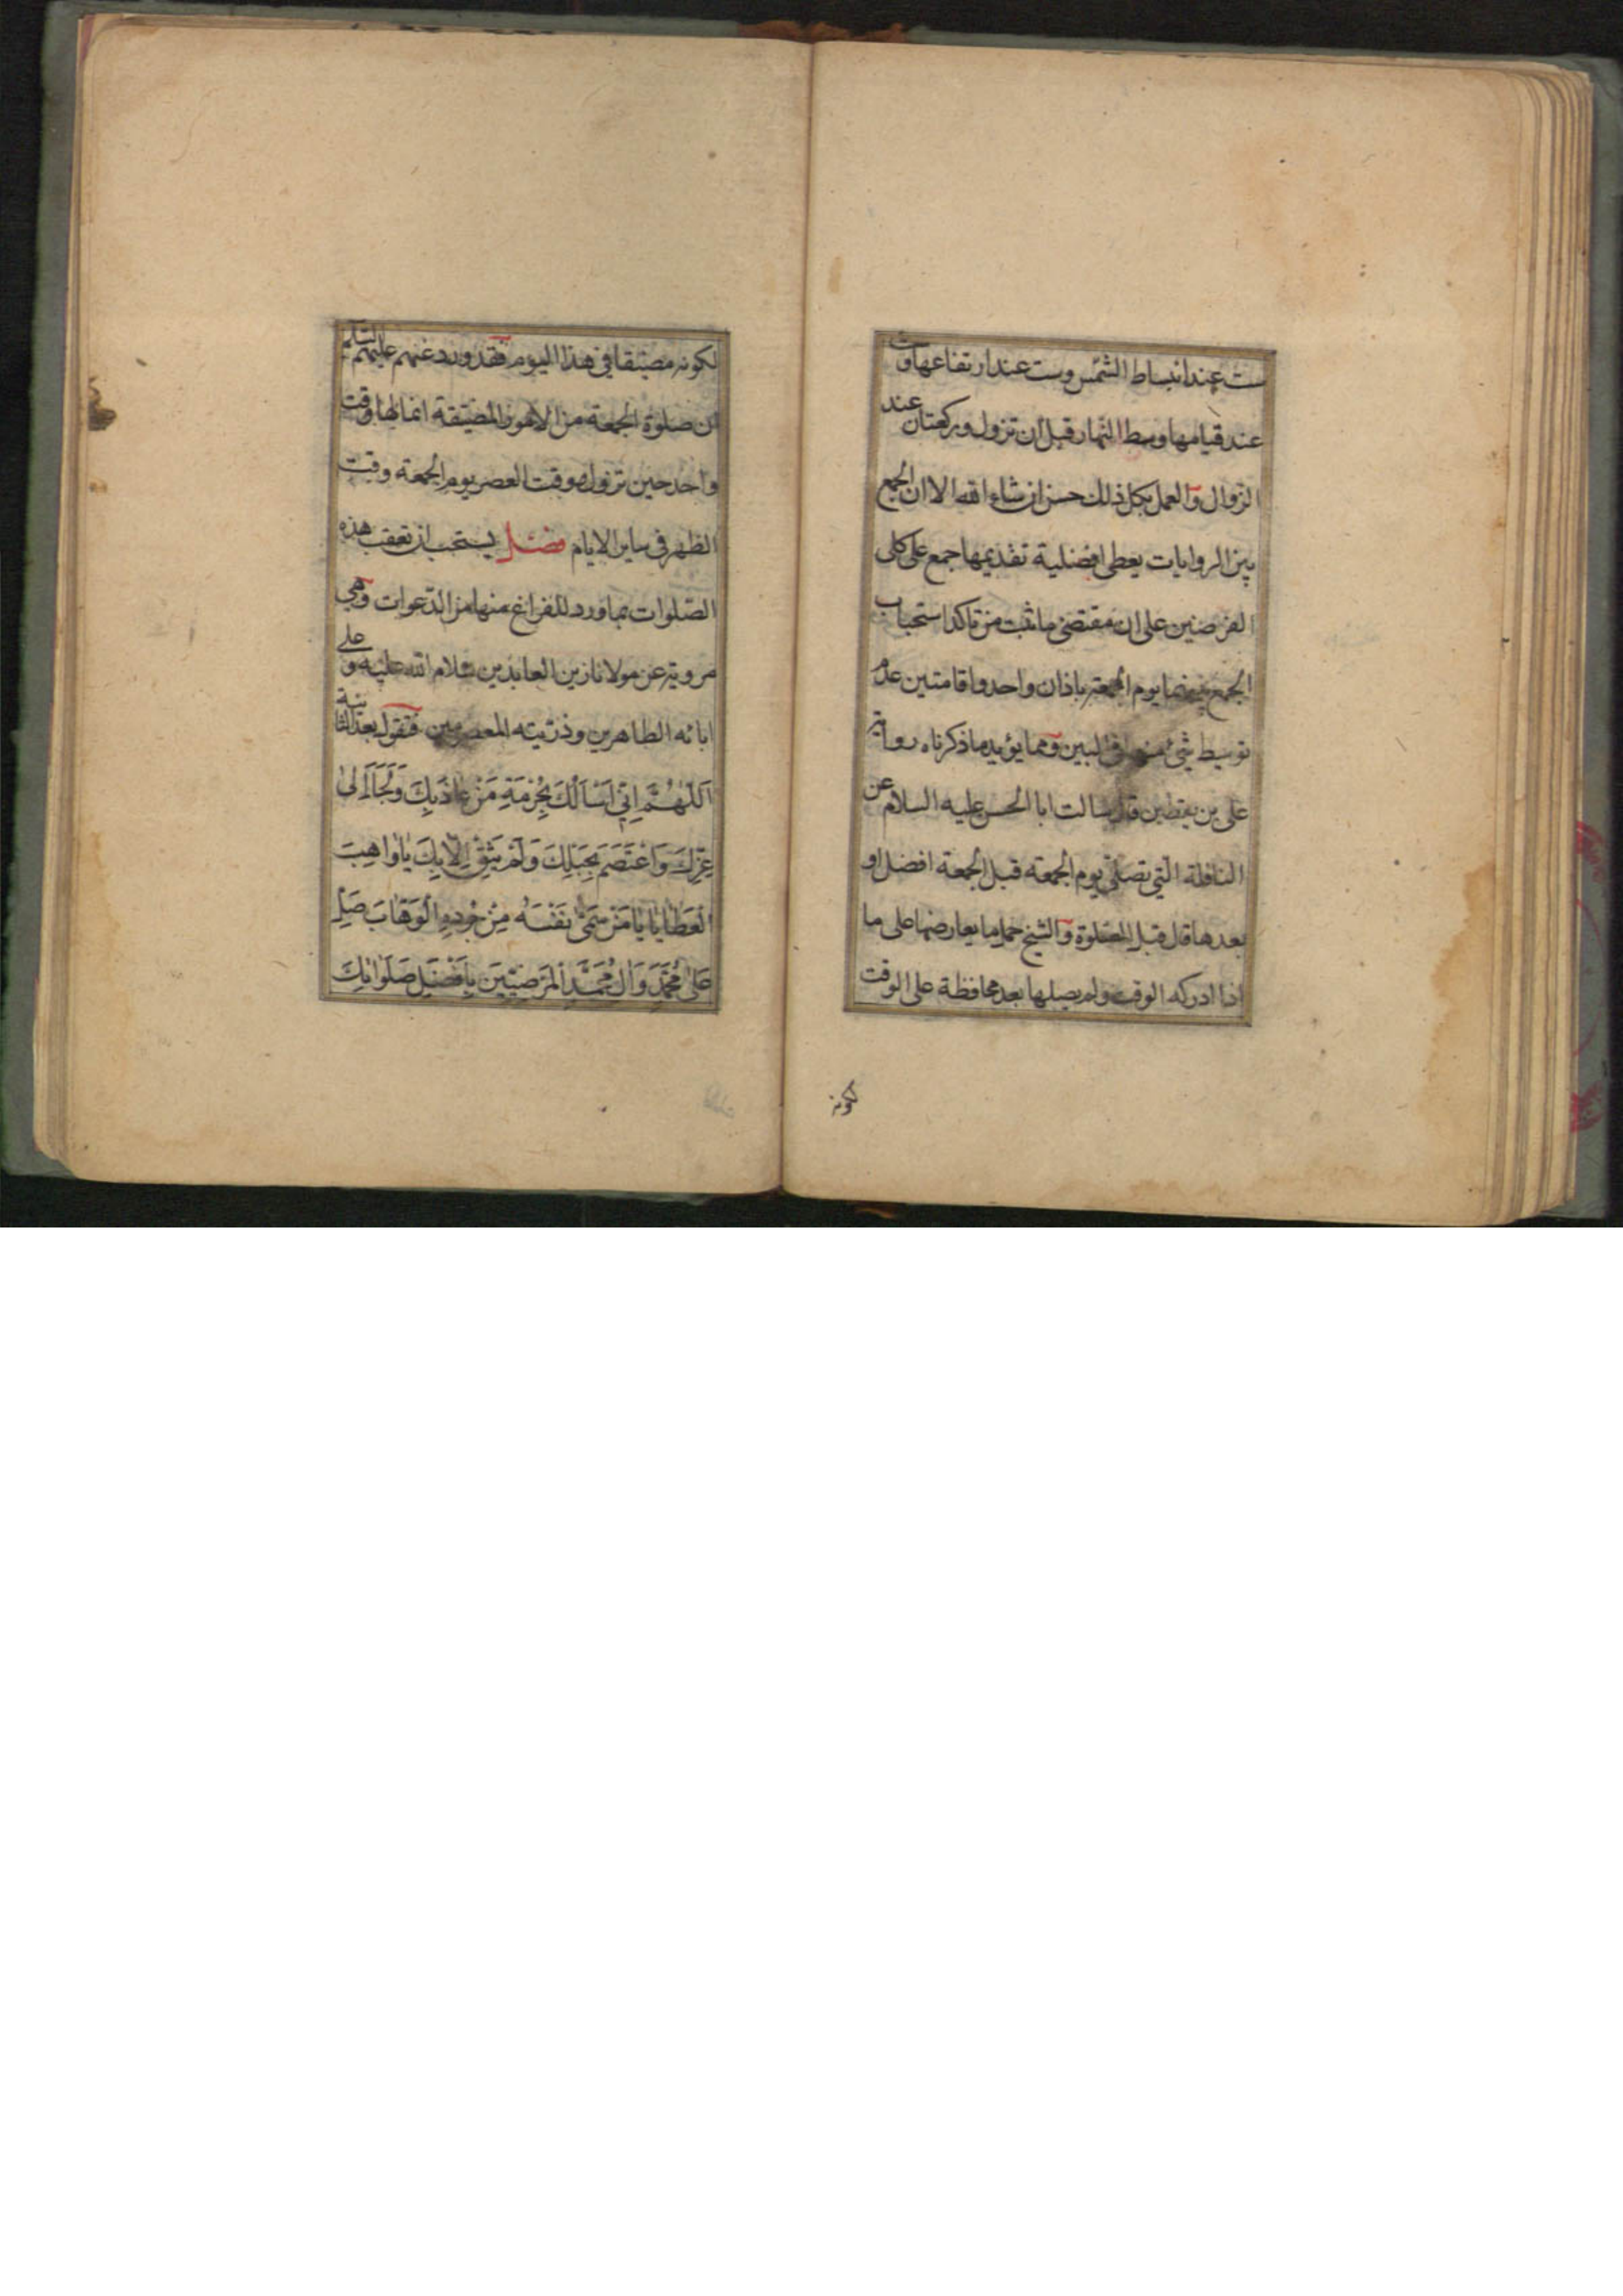 ست عند انبساط الشمس وست عند ارتفاعها وست
عند قيامها وسط النهار قبل ان تزول وركعتان عند
الزوال والعمل بكل ذلك حسن ان شاء الله الا ان الجمع
بين الروايات يعطى افضلية تقديمها جمع على كلى
الفرضين على ان مقتضى ما ثبت من تاكد استحباب
الجمع بينهما يوم الجمعة باذان واحد واقامتين عدم
توسيط شئ منها فى البين ومما يؤيد ما ذكرناه رواية
على بن يقطين قال سالت ابا الحسن عليه السلام عن
النافلة التي تصلى يوم الجمعة قبل الجمعة افضل او
بعدها قال قبل الصلوة والشيخ حمل ما يعارضها على ما
اذا ادركه الوقت ولم يصلها بعد محافظة على الوقت
لكونه
لكونه مضيقا في هذا اليوم فقد ورد عنهم عليهم السلم
ان صلوة الجمعة من الامور المضيقة انما لها وقت
واحد حين تزول ووقت العصر يوم الجمعة وقت
الظهر فى ساير الايام فصل يستحب ان تعقب هذه
الصلوات بما ورد للفراغ منها من الدعوات وهي
مروية عن مولانا زين العابدين سلام الله عليه وعلى
ابائه الطاهرين وذريته المعصومين فتقول بعد الثانية
اَللّٰهُمَّ اِنّي اَسْاَلُكَ بِحُرْمَةِ مَنْ عٰاذَ بِكَ وَلَجَاَ اِلىٰ
عِزِّكَ وَاعْتَصَمَ بِحَبْلِكَ وَلَمْ يَثِقْ اِلّا بِكَ يٰا وٰاهِبَ
الْعَطٰايٰا يٰا مَنْ سَمّىٰ نَفْسَهُ مِنْ جُودِهِ الْوَهّٰابَ صَلِّ
عَلىٰ مُحَمَّدٍ وَاٰلِ مُحَمَّدٍ الْمَرْضِيّينَ بِاَفْضَلِ صَلَوٰاتِكَ